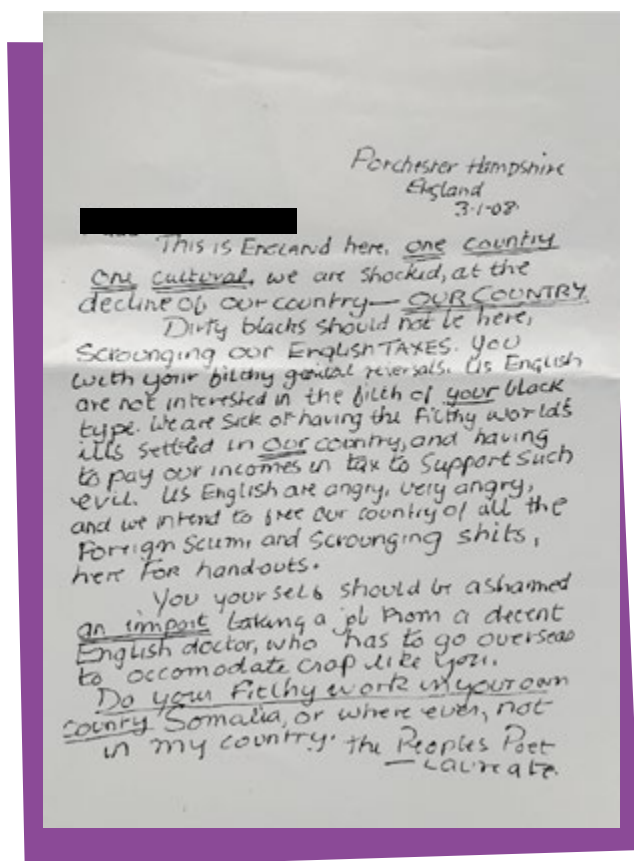 Porchester Hampshire
England
3-1-08
This is ENGLAND here, one country
one cultural, we are shocked, at the
decline of our country — OUR COUNTRY
Dirty blacks should not be here,
Scrounging our English TAXES. You
with your filthy genital reversals. Us English
are not interested in the filth of your black
type. We are sick of having the filthy world's
ills settled in our country, and having
to pay our incomes in tax to support such
evil. Us English are angry, very angry,
and we intend to free our country of all the
Foreign Scum, and Scrounging shits,
here for handouts.
You your self should be ashamed
an import taking a job from a decent
English doctor, who has to go overseas
to accomodate crap like you.
Do your filthy work in your own
county Somalia, or where ever, not
in my country. the Peoples Poet
— Laureate.